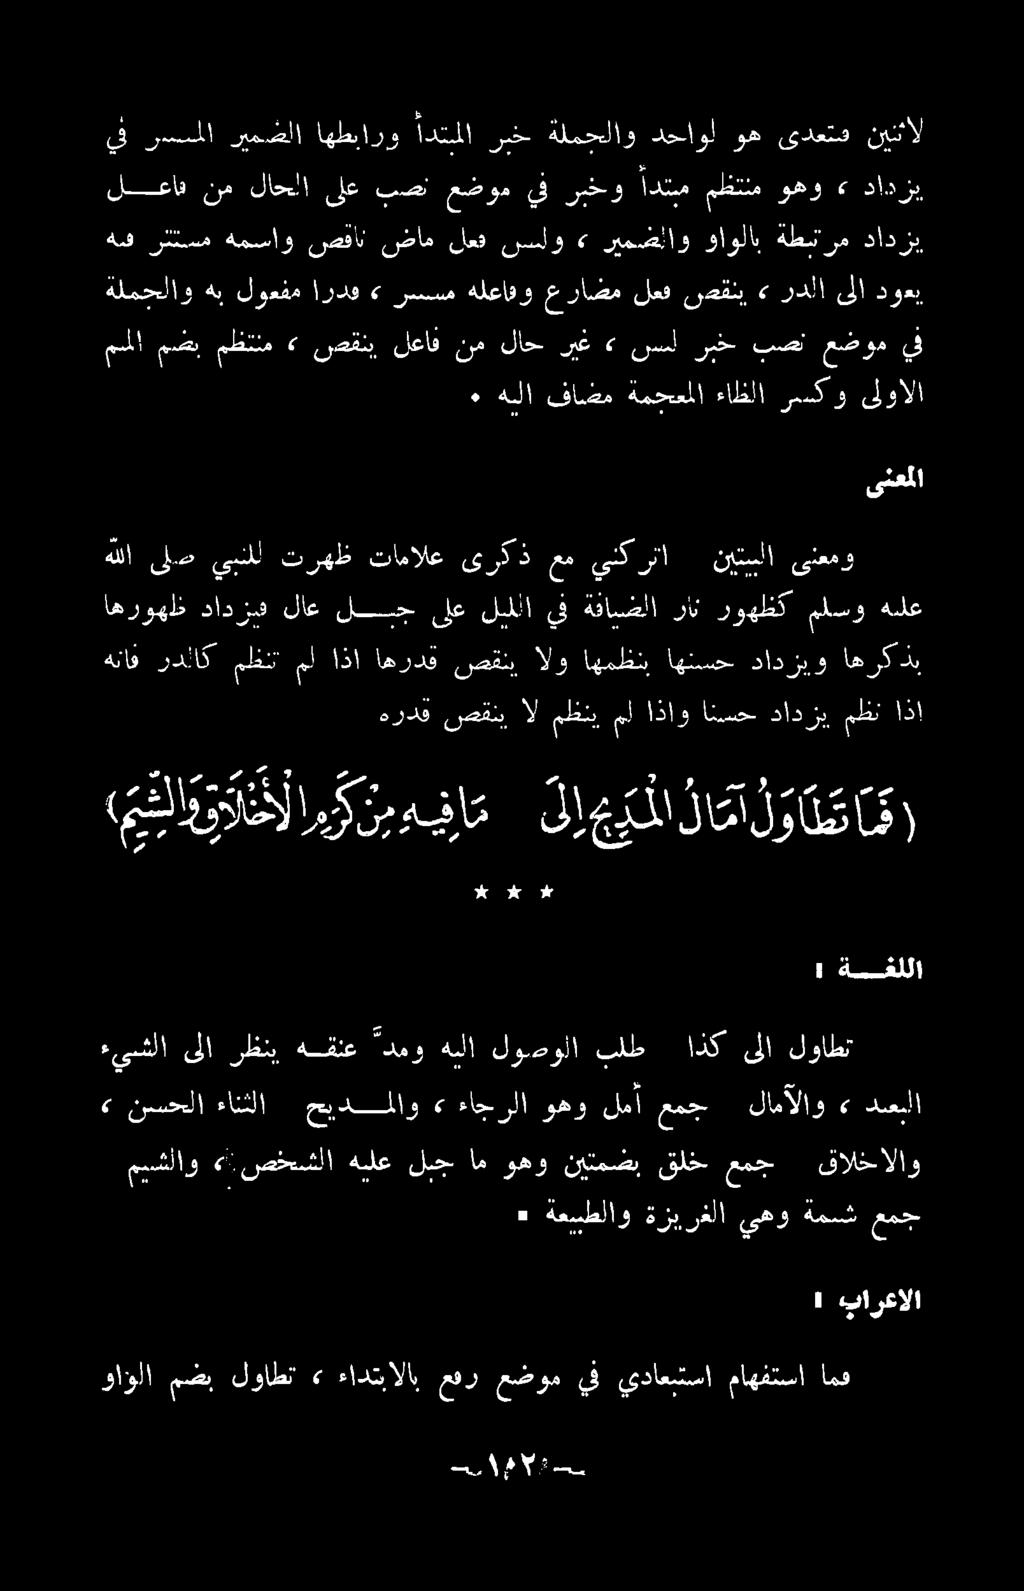 لاثنين فتعدى هو لواحد والجملة خبر المبتدأ ورابطها الضمير المستتر في
يزداد ، وهو منتظم مبتدأ وخبر في موضع نصب على الحال من فاعل
يزداد مرتبطة بالواو والضمير ، وليس فعل ماض ناقص واسمه مستتر فيه
يعود الى الدر ، ينقص فعل مضارع وفاعله مستتر ، قدرا مفعول به والجملة
في موضع نصب خبر ليس ، غير حال من فاعل ينقص ، منتظم بضم الميم
الاولى وكسر الظاء المعجمة مضاف اليه .
المعنى
ومعنى البيتين اتركني مع ذكرى علامات ظهرت للنبي صلى الله
عليه وسلم كظهور نار الضيافة في الليل على جبل عال فيزداد ظهورها
بذكرها ويزداد حسنها بنظمها ولا ينقص قدرها اذا لم تنظم كالدر فانه
اذا نظم يزداد حسنا واذا لم ينظم لا ينقص قدره
(فَمَا تَطَاوَلُ آمَالُ الْمَدِيحِ إِلَى مَا فِيهِ مِنْ كَرَمِ الْأَخْلَاقِ وَالشِّيَمِ)
★ ★ ★
اللغــة :
تطاول الى كذا طلب الوصول اليه ومدَّ عنقه ينظر الى الشيء
البعيد ، والآمال جمع أمل وهو الرجاء ، والمديح الثناء الحسن ،
والاخلاق جمع خلق بضمتين وهو ما جبل عليه الشخص ، والشيم
جمع شيمة وهي الغريزة والطبيعة .
الاعراب :
فما استفهام استبعادي في موضع رفع بالابتداء ، تطاول بضم الواو